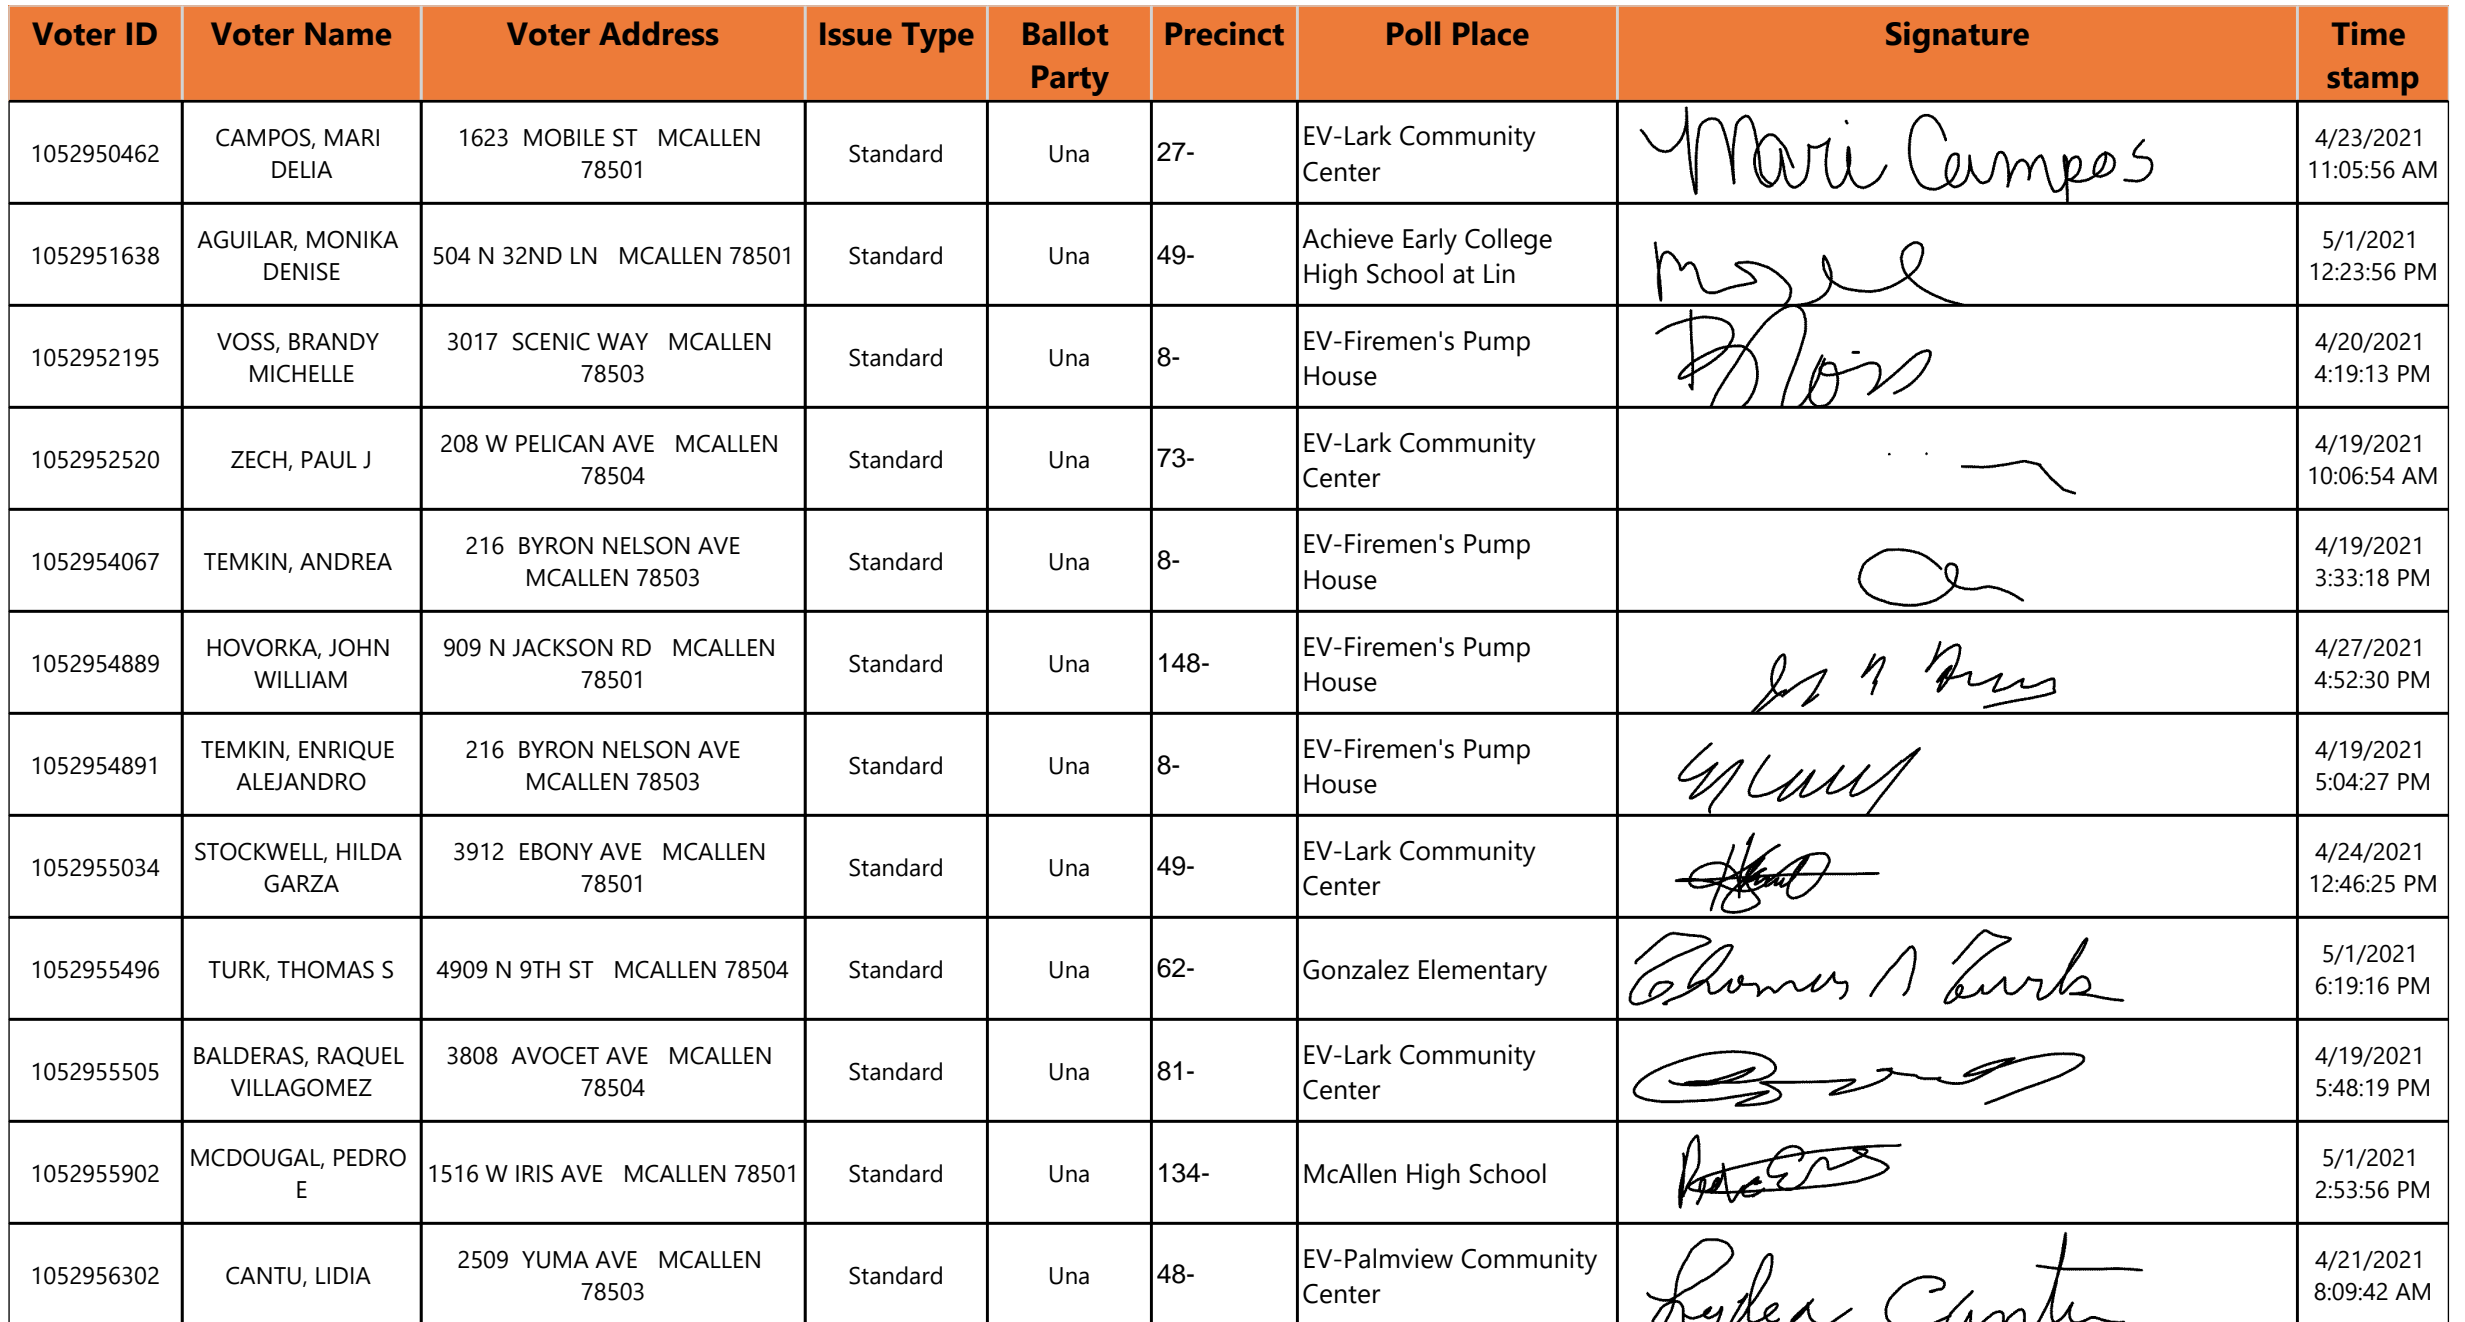 Voter ID Voter Name Voter Address Issue Type Ballot Party Precinct Poll Place Signature Time stamp
1052950462 CAMPOS, MARI DELIA 1623 MOBILE ST MCALLEN 78501 Standard Una 27- EV-Lark Community Center Mari Campos 4/23/2021 11:05:56 AM
1052951638 AGUILAR, MONIKA DENISE 504 N 32ND LN MCALLEN 78501 Standard Una 49- Achieve Early College High School at Lin 5/1/2021 12:23:56 PM
1052952195 VOSS, BRANDY MICHELLE 3017 SCENIC WAY MCALLEN 78503 Standard Una 8- EV-Firemen's Pump House 4/20/2021 4:19:13 PM
1052952520 ZECH, PAUL J 208 W PELICAN AVE MCALLEN 78504 Standard Una 73- EV-Lark Community Center 4/19/2021 10:06:54 AM
1052954067 TEMKIN, ANDREA 216 BYRON NELSON AVE MCALLEN 78503 Standard Una 8- EV-Firemen's Pump House 4/19/2021 3:33:18 PM
1052954889 HOVORKA, JOHN WILLIAM 909 N JACKSON RD MCALLEN 78501 Standard Una 148- EV-Firemen's Pump House 4/27/2021 4:52:30 PM
1052954891 TEMKIN, ENRIQUE ALEJANDRO 216 BYRON NELSON AVE MCALLEN 78503 Standard Una 8- EV-Firemen's Pump House 4/19/2021 5:04:27 PM
1052955034 STOCKWELL, HILDA GARZA 3912 EBONY AVE MCALLEN 78501 Standard Una 49- EV-Lark Community Center 4/24/2021 12:46:25 PM
1052955496 TURK, THOMAS S 4909 N 9TH ST MCALLEN 78504 Standard Una 62- Gonzalez Elementary Thomas S Turk 5/1/2021 6:19:16 PM
1052955505 BALDERAS, RAQUEL VILLAGOMEZ 3808 AVOCET AVE MCALLEN 78504 Standard Una 81- EV-Lark Community Center 4/19/2021 5:48:19 PM
1052955902 MCDOUGAL, PEDRO E 1516 W IRIS AVE MCALLEN 78501 Standard Una 134- McAllen High School 5/1/2021 2:53:56 PM
1052956302 CANTU, LIDIA 2509 YUMA AVE MCALLEN 78503 Standard Una 48- EV-Palmview Community Center Cantu 4/21/2021 8:09:42 AM